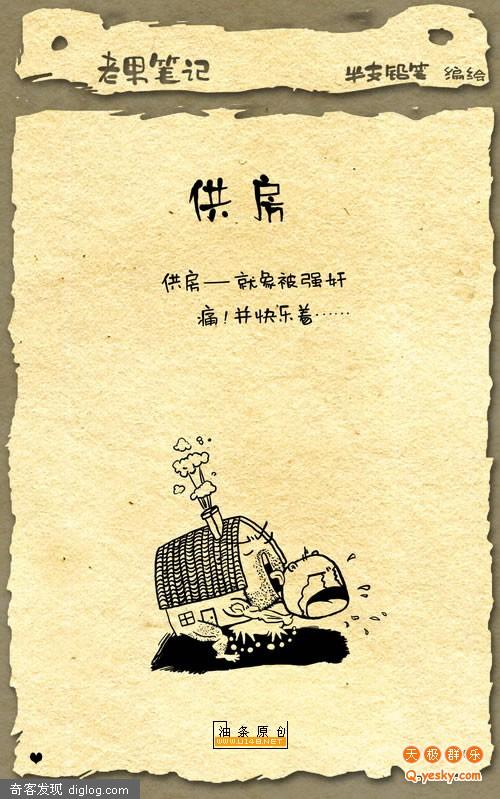 老男笔记
半支铅笔 编绘
供房
供房——就象被强奸
痛!并快乐着……
油条原创
WWW.U148.NET
天极群乐
Q.yesky.com
奇客发现 diglog.com